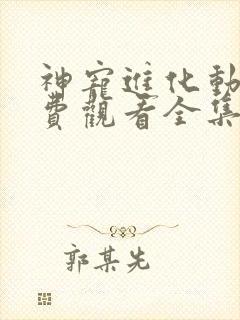 神寵進化動
費觀看全集
郭某先